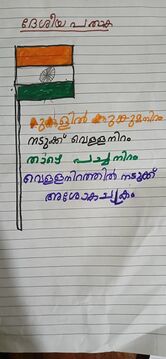 ദേശീയ പതാക
മുകളിൽ കുങ്കുമനിറം
നടുക്ക് വെള്ളനിറം
താഴെ പച്ചനിറം
വെള്ളനിറത്തിൽ നടുക്ക്
അശോകചക്രം